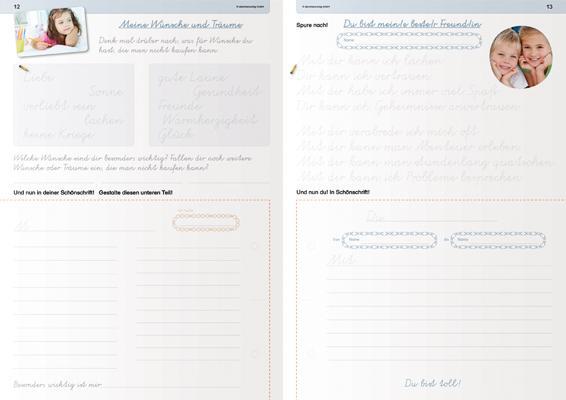 12
© abcteamverlag GmbH
Meine Wünsche und Träume
Denk mal drüber nach, was für Wünsche du
hast, die man nicht kaufen kann.
Liebe
Sonne
verliebt sein
lachen
keine Kriege
gute Laune
Gesundheit
Freunde
Warmherzigkeit
Glück
Welche Wünsche sind dir besonders wichtig? Fallen dir noch weitere
Wünsche oder Träume ein, die man nicht kaufen kann?
Und nun in deiner Schönschrift! Gestalte diesen unteren Teil!
Besonders wichtig ist mir
13
Spure nach!
Du bist mein/e beste/r Freund/in
Name
Mit dir kann ich lachen.
Dir kann ich vertrauen.
Mit dir habe ich immer viel Spaß.
Dir kann ich Geheimnisse anvertrauen.
Mit dir verabrede ich mich oft.
Mit dir kann man Abenteuer erleben.
Mit dir kann man stundenlang quatschen.
Mit dir kann ich Probleme besprechen.
Und nun du! In Schönschrift!
Du
Von
Name
An
Name
Mit
Du bist toll!